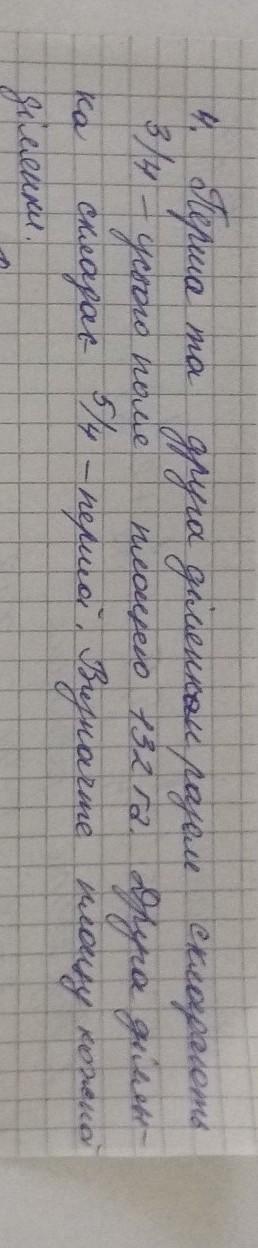 4. Перша та друга ділянком разом складають
3/4 - усього поле площею 132 га. Друга ділян-
ка складає 5/4 - першої. Визначте площу кожної
ділянки.